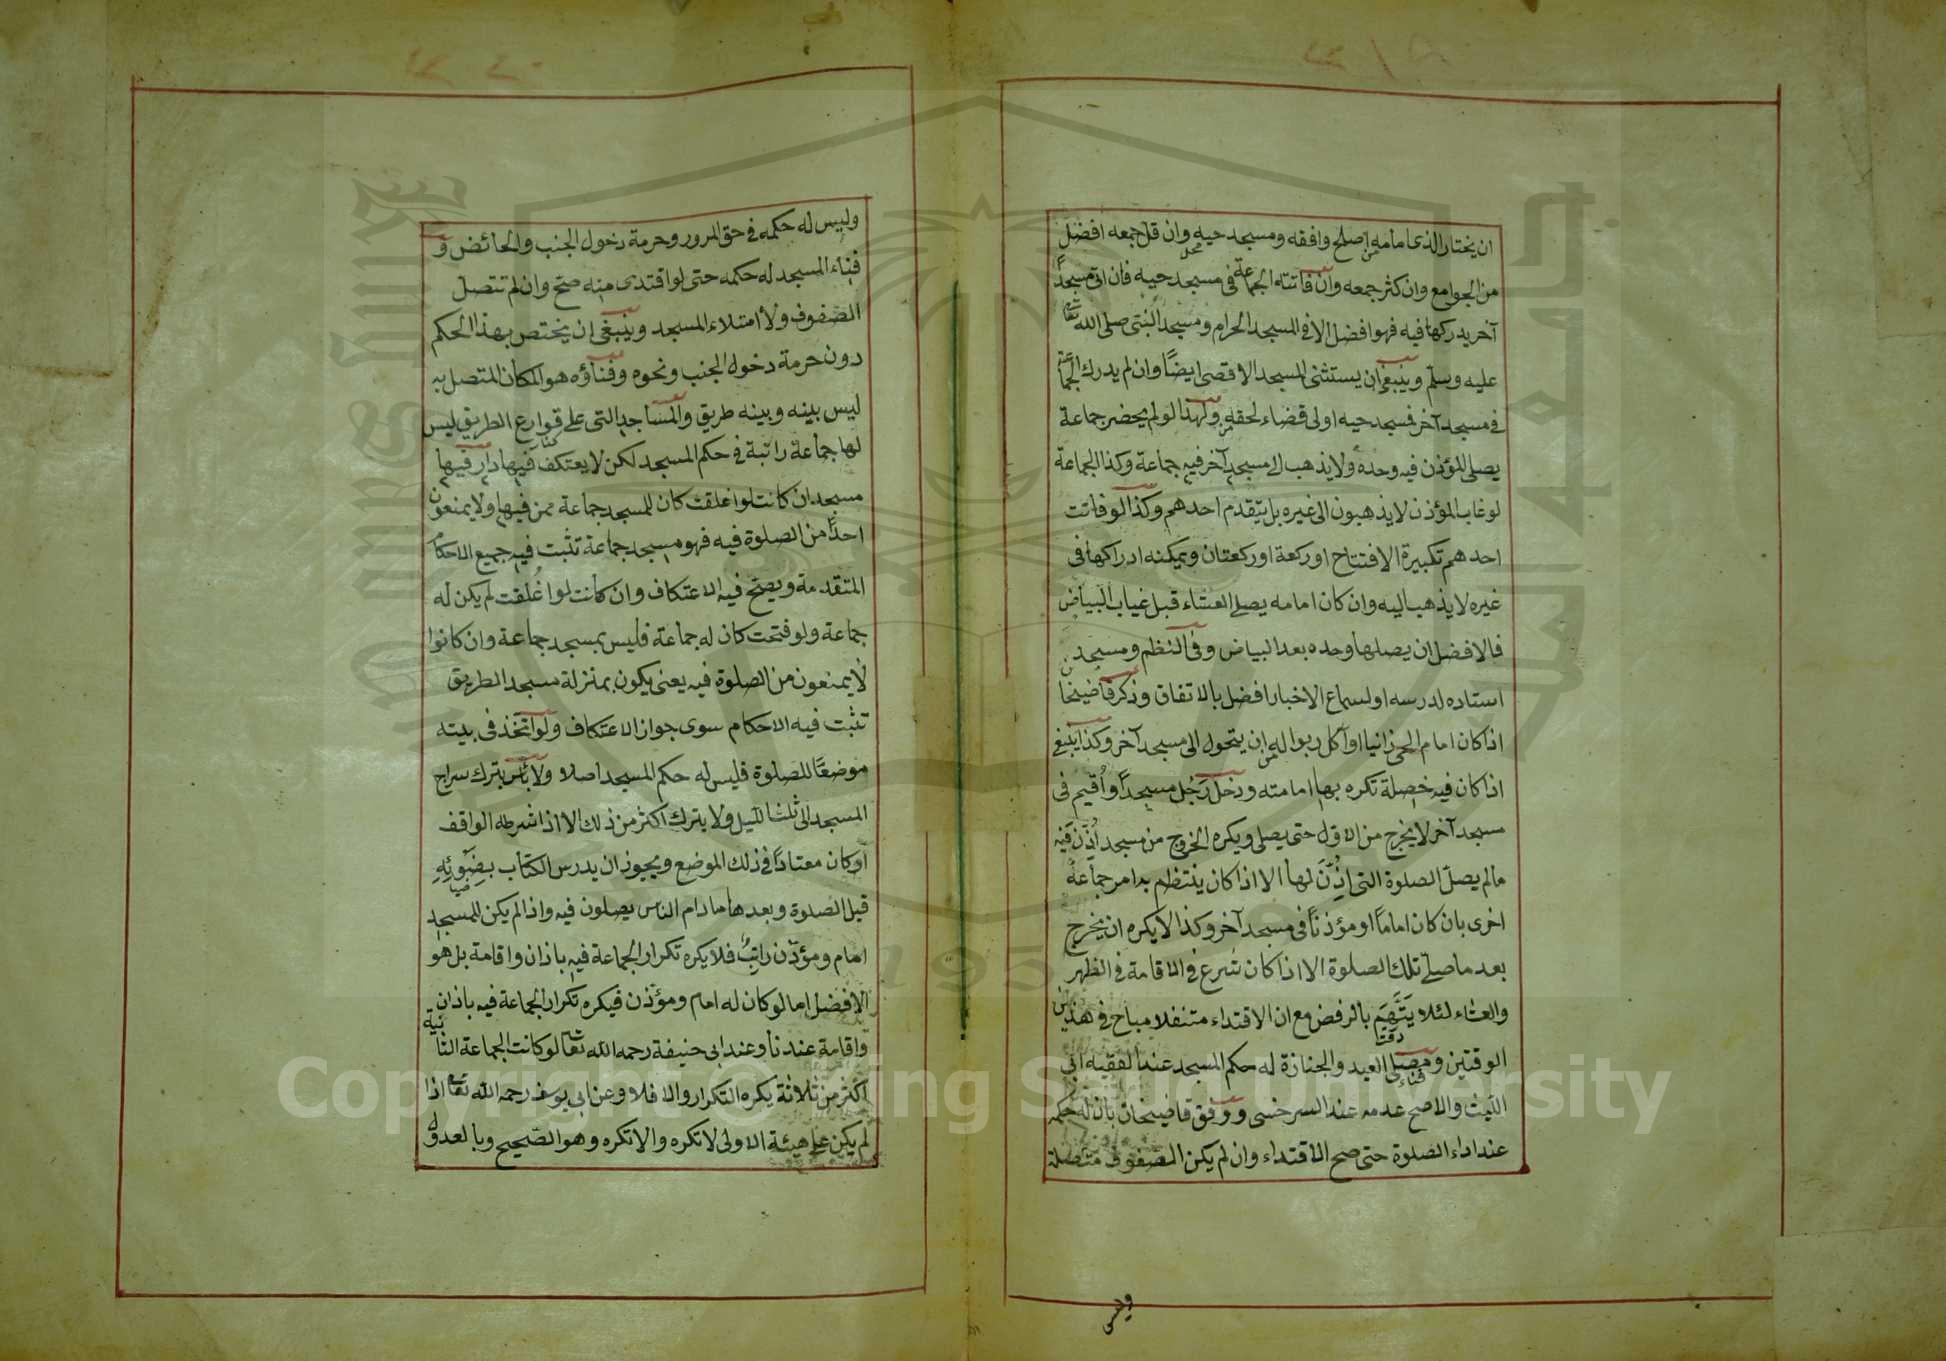 ان يختار الذى امامه اصلح وافقه ومسجد حيه وان قل جمعه افضل
من الجوامع وان كثر جمعه وان فاتته الجماعة فى مسجد حيه فان اتى مسجدًا
آخر يدركها فيه فهو افضل الا فى المسجد الحرام ومسجد النبى صلى الله تعالى
عليه وسلم وينبغى ان يستثنى المسجد الاقصى ايضًا وان لم يدرك الجماعة
فى مسجد آخر فمسجد حيه اولى قضاء لحقه ولهذا لو لم يحضر جماعة
يصلى المؤذن فيه وحده ولا يذهب الى مسجد آخر فيه جماعة وكذا الجماعة
لو غاب المؤذن لا يذهبون الى غيره بل يتقدم احدهم وكذا لو فاتت
احدهم تكبيرة الافتتاح او ركعة او ركعتان ويمكنه ادراكها فى
غيره لا يذهب اليه وان كان امامه يصلى العشاء قبل غياب البياض
فالافضل ان يصلها وحده بعد البياض وفى النظم ومسجد
استاده لدرسه او لسماع الاخبار افضل بالاتفاق وذكر قاضيخان
اذا كان امام الحى زانيا او آكل ربوا له ان يتحول الى مسجد آخر وكذا ينبغى
اذا كان فيه خصلة تكره بها امامته ودخل رَجُل مسجدًا واُقيم فى
مسجد آخر لا يخرج من الاول حتى يصلى ويكره الخروج من مسجد اُذِّن فيه
مالم يصلّ الصلوة التى اذِّنَ لها الا اذا كان ينتظم به امر جماعة
اخرى بان كان امامًا او مؤذنًا فى مسجد آخر وكذا لا يكره ان يخرج
بعد ما صلى تلك الصلوة الا اذا كان شرع فى الاقامة فى الظهر
والعشاء لئلا يَتَّهِم بالرفض مع ان الاقتداء متنفلا مباح فى هذين
الوقتين ومصلى العيد والجنازة له حكم المسجد عند الفقيه ابى
الليث والاصح عدمه عند السرخسى ووفق قاضيخان بان له حكمه
عند اداء الصلوة حتى صح الاقتداء وان لم يكن الصفوف متصلة
وليس
وليس له حكمه فى حق المرور وحرمة دخول الجنب والحائض و
فناء المسجد له حكمه حتى لو اقتدى منه صح وان لم تتصل
الصّفوف ولا امتلاء المسجد وينبغى ان يختص بهذا الحكم
دون حرمة دخول الجنب ونحوه وفناؤه هو المكان المتصل به
ليس بينه وبينه طريق والمساجد التى على قوارع الطريق ليس
لها جماعة راتبة فى حكم المسجد لكن لا يعتكف فيها دار فيها
مسجد ان كانت لو اغلقت كان للمسجد جماعة ممن فيها ولا يمنعون
احدًا من الصلوة فيه فهو مسجد جماعة تثبت فيه جميع الاحكام
المتقدمة ويصح فيه الاعتكاف وان كانت لو اغلقت لم يكن له
جماعة ولو فتحت كان له جماعة فليس بمسجد جماعة وان كانوا
لا يمنعون من الصلوة فيه يعنى يكون بمنزلة مسجد الطريق
تثبت فيه الاحكام سوى جواز الاعتكاف ولو اتخذ فى بيته
موضعًا للصلوة فليس له حكم المسجد اصلا ولا بأس بترك سراج
المسجد الى ثلث الليل ولا يترك اكثر من ذلك الا اذا شرطه الواقف
او كان معتادًا فى ذلك الموضع ويجوز ان يدرس الكتاب بضوئه
قبل الصلوة وبعدها مادام الناس يصلون فيه واذا لم يكن للمسجد
امام ومؤذّن راتبٌ فلا يكره تكرار الجماعة فيه باذان واقامة بل هو
الافضل اما لو كان له امام ومؤذن فيكره تكرار الجماعة فيه باذان
واقامة عندنا وعند ابى حنيفة رحمه الله تعالى لو كانت الجماعة الثانية
اكثر من ثلاثة يكره التكرار والا فلا وعن ابى يوسف رحمه الله تعالى اذا
لم يكن على هيئة الاولى لا تكره والا تكره وهو الصّحيح وبالعدول
Copyright © King Saud University